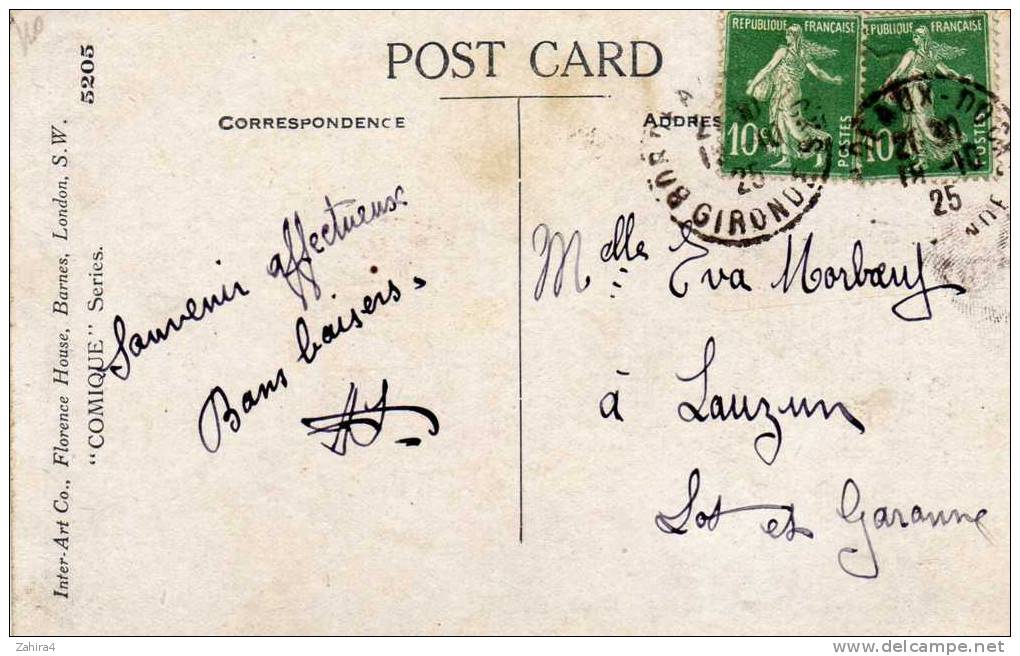 POST CARD
CORRESPONDENCE
ADDRESS
5205
Inter-Art Co., Florence House, Barnes, London, S.W.
"COMIQUE" Series.
REPUBLIQUE FRANÇAISE
10c
POSTES
REPUBLIQUE FRANÇAISE
10
POSTES
BORD
GIRONDE
25
UX-D
25
Souvenir affectueux
Bons baisers.
Melle Eva Morbœuf
à Lauzun
Lot et Garonne
Zahira4
delcampe.net